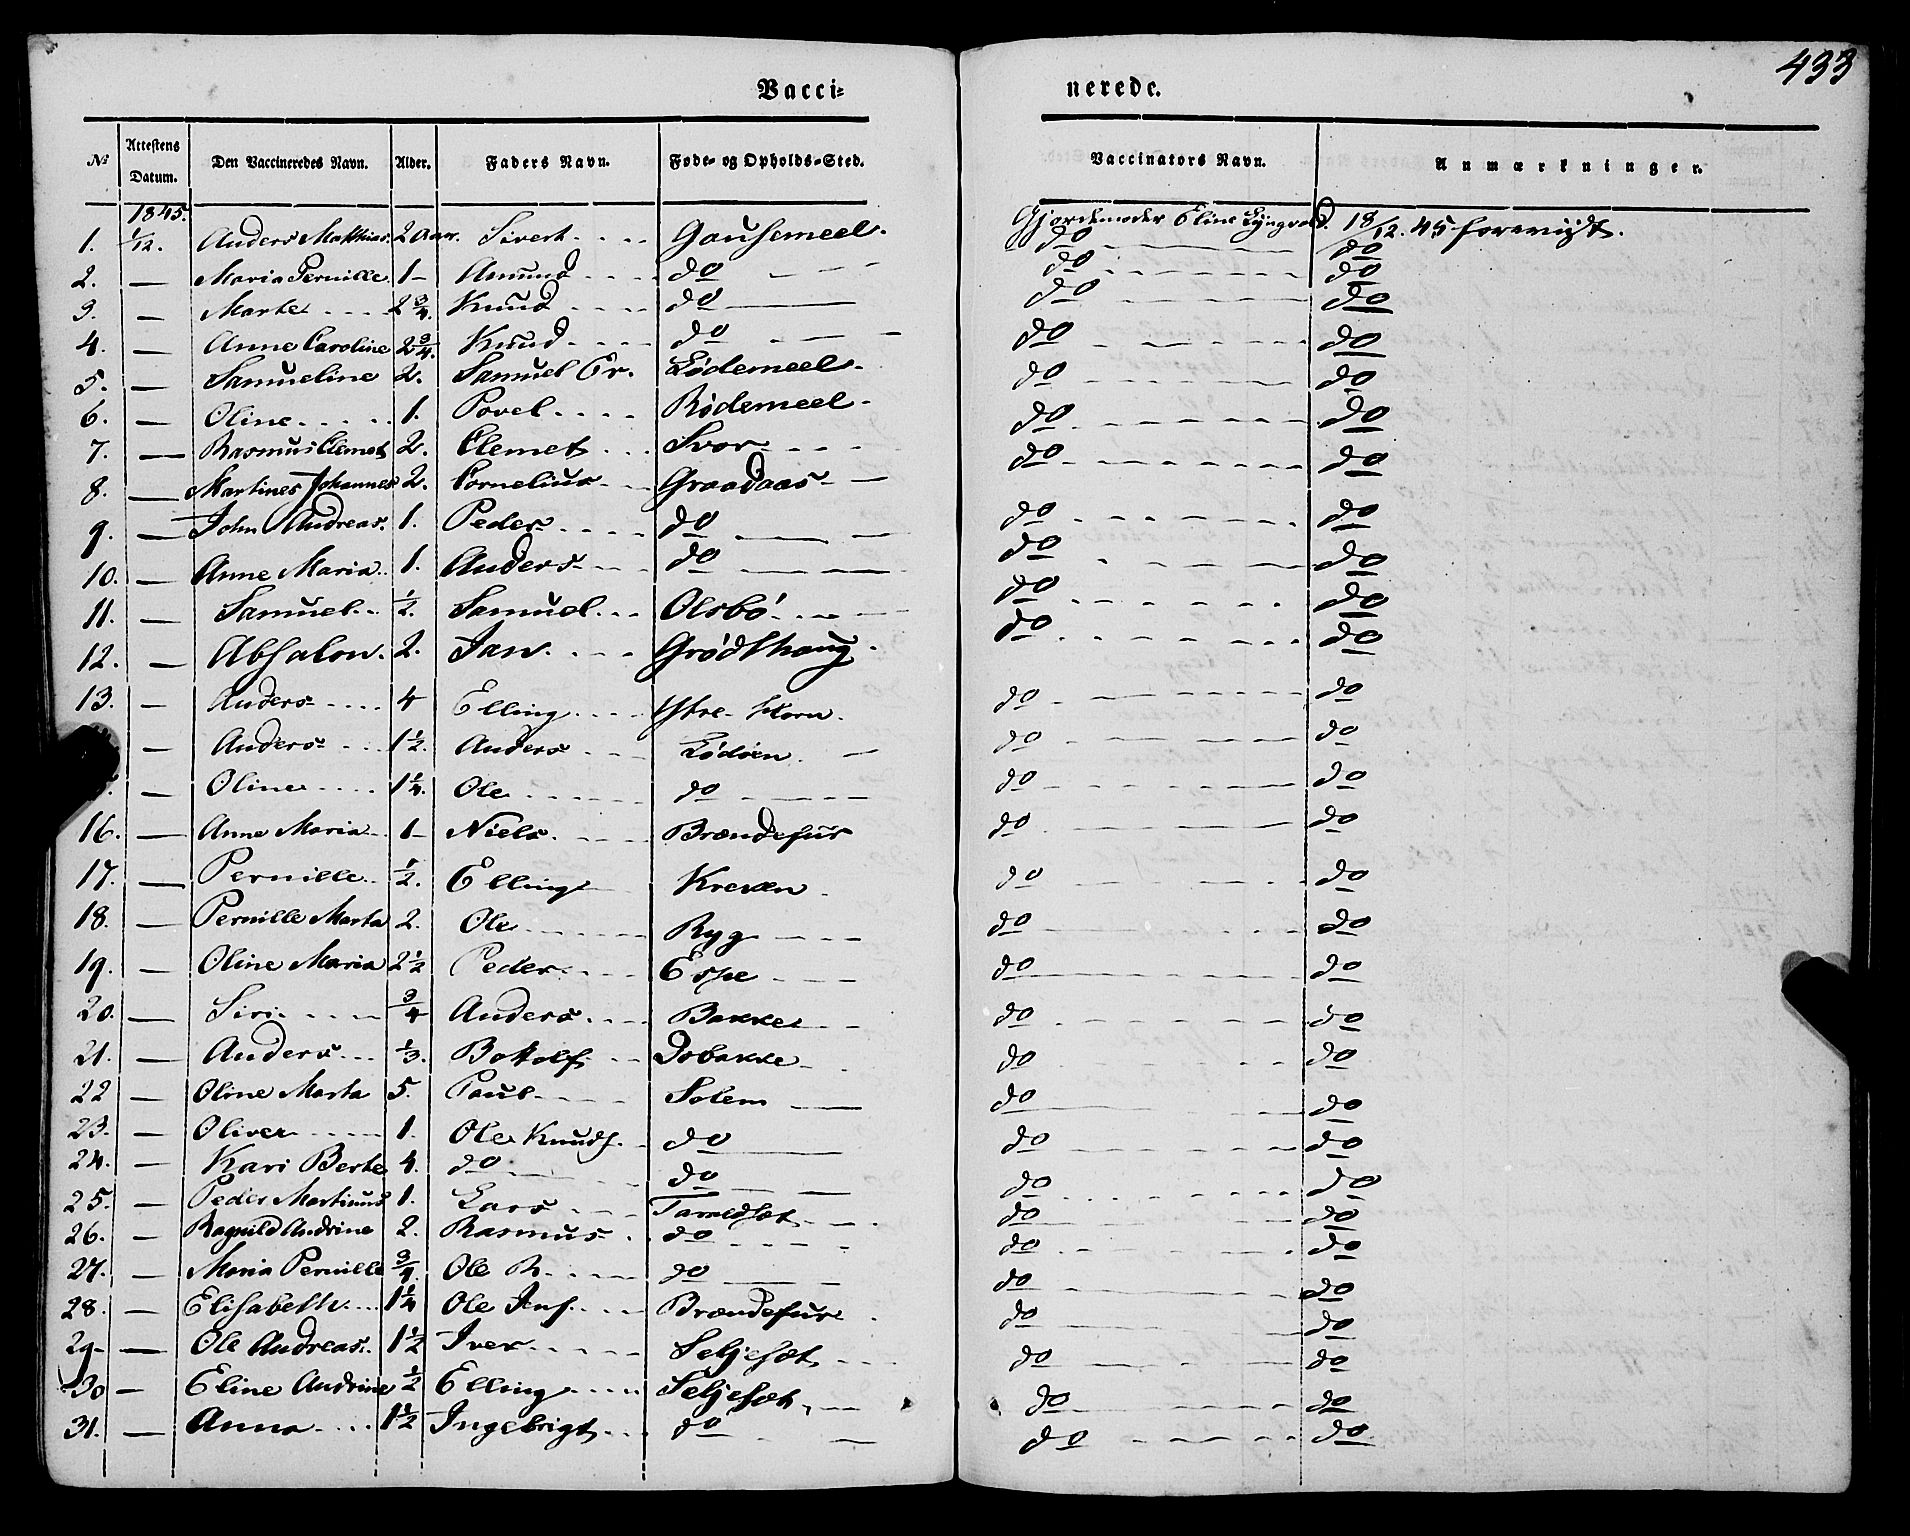 433
Vacci-
nerede.
№ Attestens Datum. Den Vaccineredes Navn. Alder. Faders Navn. Føde- og Opholds-Sted. Vaccinators Navn. Anmærkninger.
1845.
1. 1/12. Anders Matthias 2 Aar. Sivert Gjordemoder Eline 18/12. 45 foreviist.
2. — Maria Pernille 1 — Amund do do do
3. — Marte 2 3/4. Knud do do do
4. — Anne Caroline 2 3/4. Knud do do do
5. — Samueline 2. Samuel Er. Lødemeel do do
6. — Oline 1. Povel Rødemeel do do
7. — Rasmus Clemet 2. Clemet Svor do do
8. — Martines Johannes 2. Cornelius Graadaas do do
9. — John Andreas. 1. Peder do do do
10. — Anne Maria 1. Anders do do do
11. — Samuel 1/2. Samuel Olsbø do do
12. — Absalon. 2. Jan. Grødthaug do do
13. — Anders 4 Elling Ytre-Horn. do do
— Anders 1 1/2. Anders Lødøen do do
— Oline 1 1/4. Ole do do do
16. — Anne Maria 1 — Niels Brændefur do do
17. — Pernille 1/2. Elling Kreken do do
18. — Pernille Marta 2. Ole Ryg do do
19. — Oline Maria 2 1/2 Peder Espe do do
20. — Siri 3/4 Anders Bakke do do
21. — Anders 1/3. Bottolf Dobakke do do
22 — Oline Marta 5. Paul Solem do do
23. — Oliver 1. Ole Knuds. do do do
24. — Kari Berte 4. do do do do
25. — Peder Martinus 1. Lars Taraldset do do
26. — Ragnild Andrine 2. Rasmus do do do
27. — Maria Pernille 3/4. Ole R. do do do
28. — Elisabeth 1 1/4 Ole Jens. Brændefur do do
29 — Ole Andreas 1 1/2 Iver Seljeset do do
30 — Eline Andrine 1/2 Elling Seljeset do do
31. — Anna 1 1/2 Ingebrigt do do do